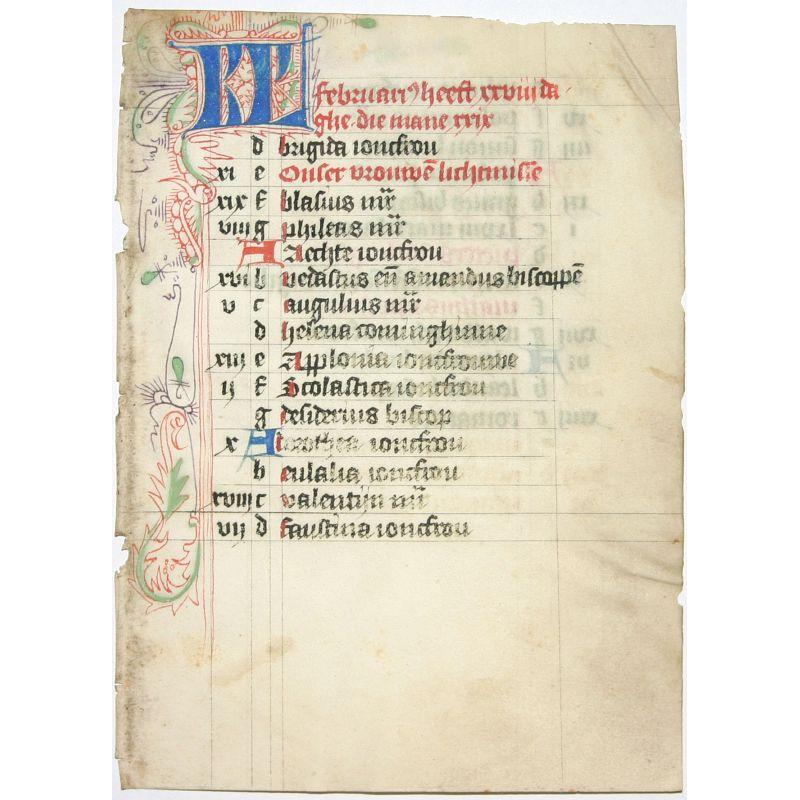 KL
Februari9 heeft xxviij da
ghe. die mane xxix
d brigida ioncfrou
xi e Onser vrouwē lichtmisse
xix f blasius mr̄
viij g phileas mr̄
A Aechte ioncfrou
xvi b vedastus eñ amandus biscoppē
v c augulius mr̄
d helena coninghinne
xiij e Applonia ioncfrouwe
ij f Scolastica ioncfrou
g desiderius biscop
x A dorothea ioncfrou
b eulalia ioncfrou
xviij c valentijn mr̄
vij d faustina ioncfrou